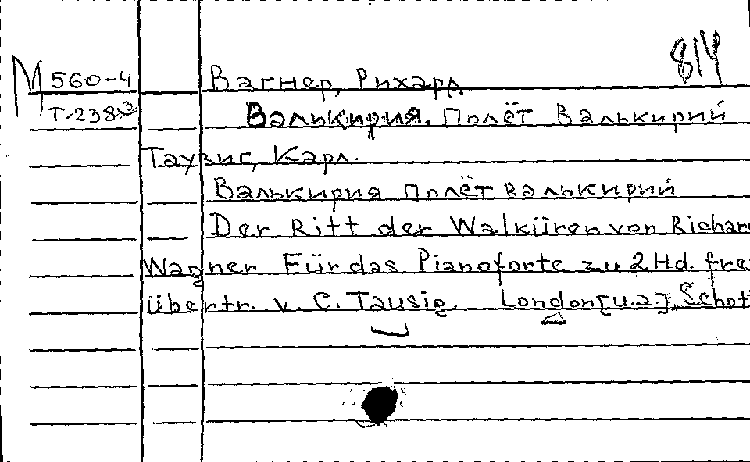 814
М 560-4 Вагнер, Рихард
Т-238 Валькирия. Полёт Валькирий
Таузиг, Карл.
Валькирия Полёт валькирий
Der Ritt der Walküren von Richar
Wagner Für das Pianoforte zu 2 Hd. frei
übertr. v. C. Tausig. London [u.a.], Schot